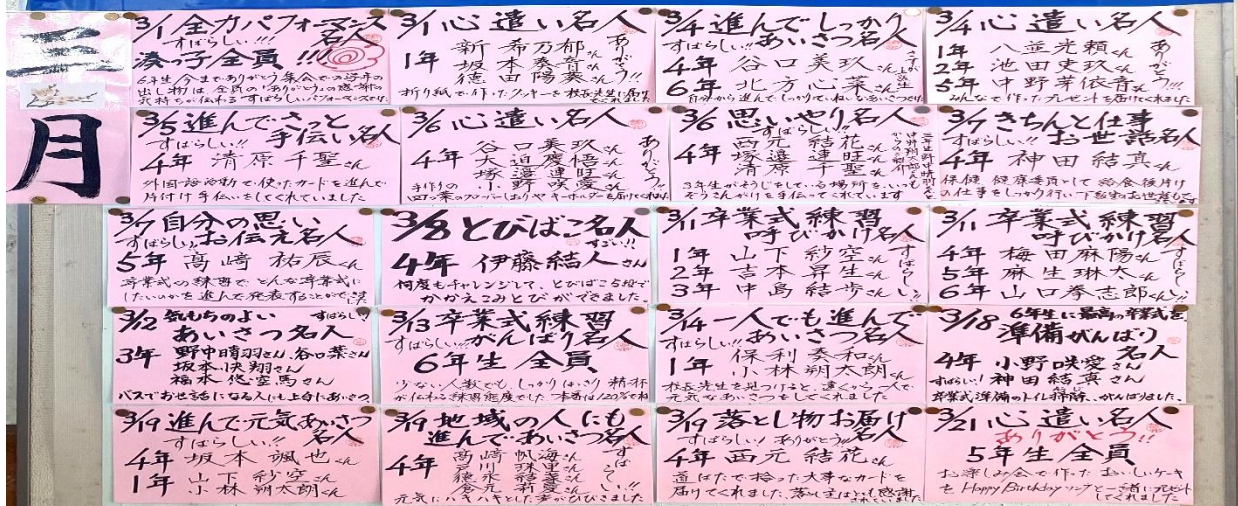 三月
3/1 全力パフォーマンス名人
すばらしい!!!
湊っ子全員!!!
6年生、今までありがとう集会での各学年の
出し物は、全員の「ありがとう」の感謝の
気持ちが伝わるすばらしいパフォーマンスでした
3/1 心遣い名人
1年
新 希乃郁さん
坂本奏音さん
徳田陽葵さん
ありがとう!!
折り紙で作ったクッキーを校長先生に届けてくれました
3/4 進んでしっかりあいさつ名人
すばらしい!!
4年 谷口美玖さん
6年 北方心葉さん
自分から進んでしっかりていねいなあいさつでした
3/4 心遣い名人
1年 八並光頼さん
2年 池田吏玖さん
5年 中野芽依音さん
ありがとう!!!
みんなで作ったプレゼントを届けてくれました
3/5 進んでさっと手伝い名人
すばらしい!!
4年 清原千聖さん
外国語活動で使ったカードを進んで
片付け手伝いをしてくれていました
3/6 心遣い名人
4年
谷口美玖さん
大迫慶悟さん
塚邉連旺さん
小野咲愛さん
ありがとう!!
手作りの
四つ葉のクローバーしおりやキーホルダーを届けてくれました
3/6 思いやり名人
すばらしい!!
4年
西元結花さん
塚邉連旺さん
清原千聖さん
3年生がそうじをしている場所を、いつも
ぞうきんがけを手伝ってくれています
3/7 きちんと仕事お世話名人
すばらしい!!
4年 神田結真さん
保健、健康委員として給食後片付け
の仕事をしっかり行い
3/7 自分の思いお伝え名人
すばらしい
5年 高崎祐辰さん
卒業式の練習で、どんな卒業式に
したいのかを進んで発表することができました
3/8 とびばこ名人
すごい!!
4年 伊藤結人さん
何度もチャレンジして、とびばこ5段で
かかえこみとびができました。
3/11 卒業式練習呼びかけ名人
1年 山下紗空さん
2年 吉本昇生さん
3年 中島結歩さん
すばらしい!!
3/11 卒業式練習呼びかけ名人
4年 梅田麻陽さん
5年 麻生琳太さん
6年 山口拳志郎さん
すばらしい!!
3/12 気もちのよいあいさつ名人
すばらしい!
3年
野中晴羽さん、谷口葉さん
坂本快翔さん
福本悠空馬さん
バスでお世話になる人にも上白にあいさつ
3/13 卒業式練習がんばり名人
すばらしい!!
6年生 全員
少ない人数でも、しっかりはっきり
が伝わる練習態度でした
3/14 一人でも進んであいさつ名人
すばらしい!!
1年
保利奏和さん
小林朔太朗さん
校長先生を見つけると、遠くから一人で
元気なあいさつをしてくれました
3/18 6年生に最高の卒業式を、
準備がんばり名人
4年 小野咲愛さん
すばらしい! 神田結真さん
卒業式準備のトイレ掃除、がんばりました。
3/19 進んで元気あいさつ名人
すばらしい!!
4年 坂本颯也さん
1年 山下紗空さん
小林朔太朗さん
3/19 地域の人にも進んであいさつ名人
4年
高崎帆海さん
戸川珠里さん
徳永結葵さん
倉元新愛さん
すばらしい!!
元気にハキハキとした声がひびきました
3/19 落とし物お届け名人
すばらしい! ありがとう!!
4年 西元結花さん
道ばたで拾った大事なカードを
届けてくれました。落とし主はとても感謝されていました
3/21 心遣い名人
ありがとう!!
5年生 全員
お楽しみ会で作ったおいしいケーキ
を Happy Birthday ソングと一緒にプレゼント
してくれました